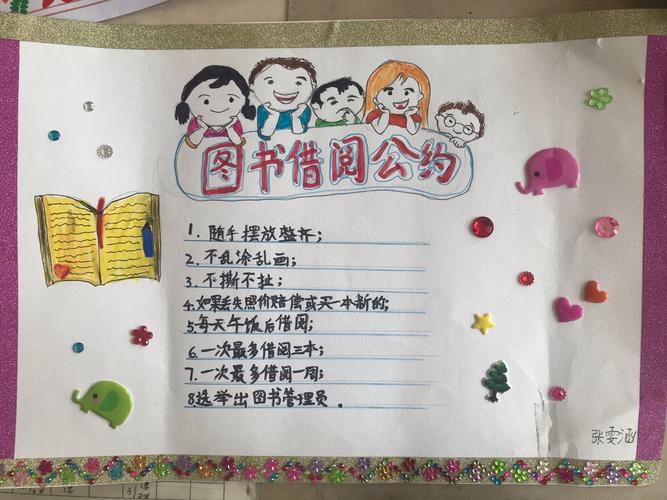 图书借阅公约
1. 随手摆放整齐;
2. 不乱涂乱画;
3. 不撕不扯;
4.如果丢失照价赔偿或买一本新的;
5.每天午饭后借阅;
6.一次最多借阅三本;
7.一次最多借阅一周;
8选举出图书管理员.
张雯涵